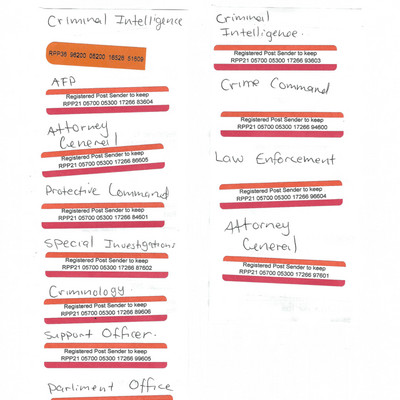 Criminal Intelligence
RPP36 96200 05200 16526 51609
AFP
Registered Post Sender to keep
RPP21 05700 05300 17266 83604
Attorney
General
Registered Post Sender to keep
RPP21 05700 05300 17266 86605
Protective Command
Registered Post Sender to keep
RPP21 05700 05300 17266 84601
Special Investigations
Registered Post Sender to keep
RPP21 05700 05300 17266 87602
Criminology.
Registered Post Sender to keep
RPP21 05700 05300 17266 89606
Support Officer.
Registered Post Sender to keep
RPP21 05700 05300 17266 99605
Parliment Office
Criminal
Intelligence.
Registered Post Sender to keep
RPP21 05700 05300 17266 93603
Crime Command
Registered Post Sender to keep
RPP21 05700 05300 17266 94600
Law Enforcement
Registered Post Sender to keep
RPP21 05700 05300 17266 96604
Attorney
General
Registered Post Sender to keep
RPP21 05700 05300 17266 97601